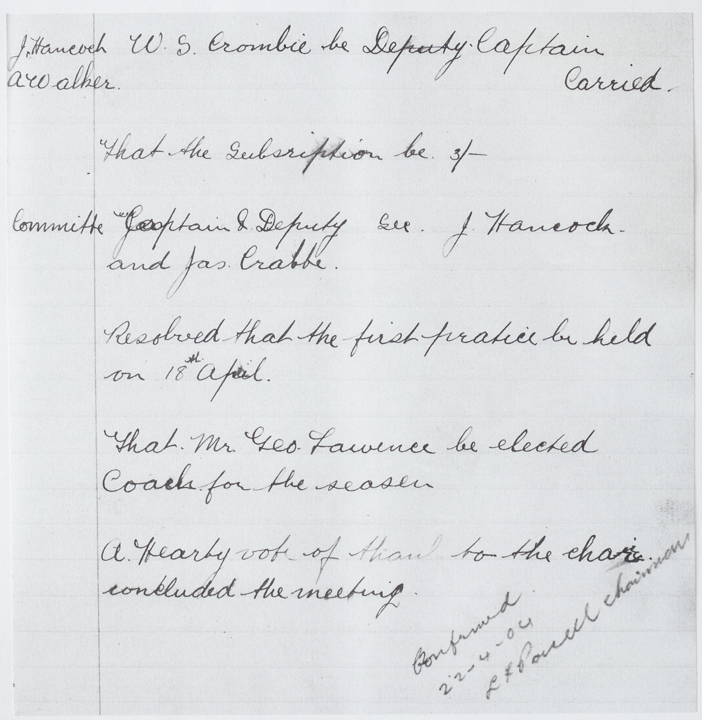 J. Hancock W. S. Crombie be Deputy Captain
A Walker. Carried.
"That the Subscription be. 3/-
Committe "Captain & Deputy Sec. J. Hancock.
and Jas. Crabbe.
Resolved that the first pratice be held
on 18th April.
That. Mr. Geo. Lawence be elected
Coach for the season
A. Hearty vote of thank to the chair.
concluded the meeting.
Confirmed
22-4-04
Powell chairman